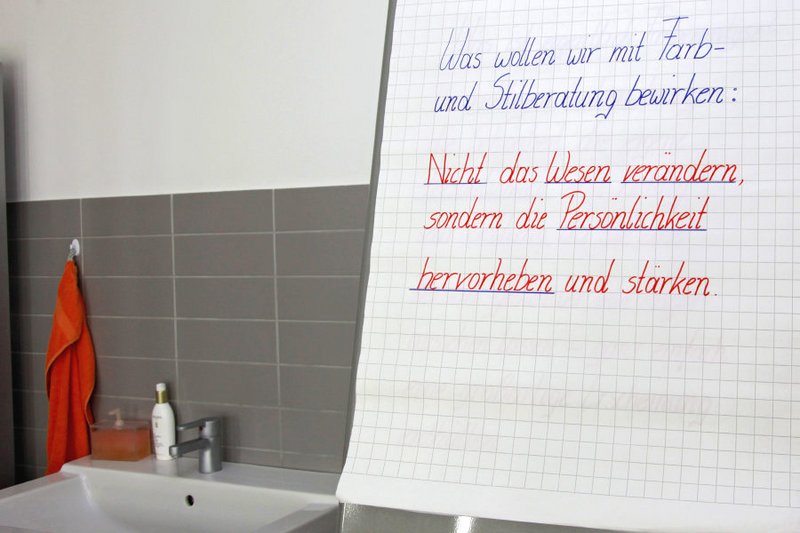 Was wollen wir mit Farb-
und Stilberatung bewirken:
Nicht das Wesen verändern,
sondern die Persönlichkeit
hervorheben und stärken.